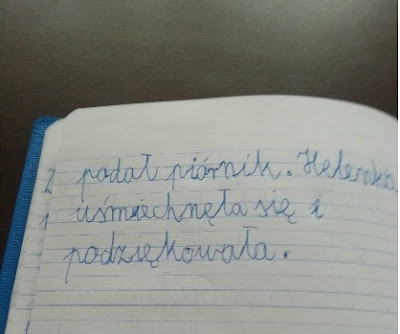 podał piórnik. Helenka
uśmiechnęła się i
podziękowała.